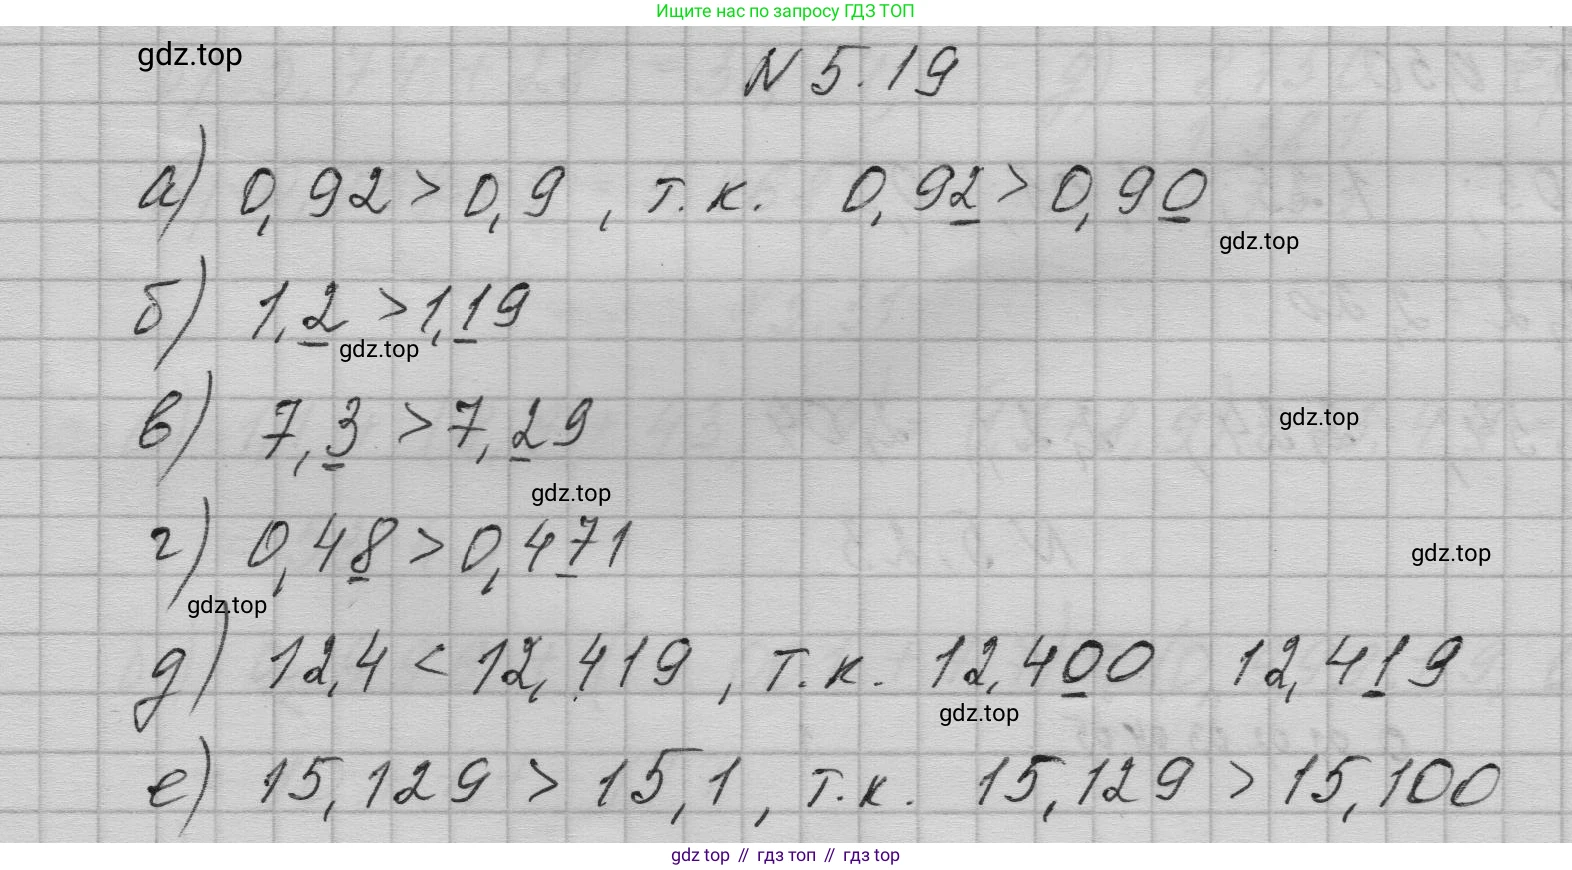 Ищите нас по запросу ГДЗ ТОП
gdz.top
N 5.19
а) 0,92 > 0,9 , т.к. 0,92 > 0,90
gdz.top
б) 1,2 > 1,19
gdz.top
в) 7,3 > 7,29
gdz.top
gdz.top
г) 0,48 > 0,471
gdz.top
gdz.top
д) 12,4 < 12,419 , т.к. 12,400 12,419
gdz.top
е) 15,129 > 15,1 , т.к. 15,129 > 15,100
gdz top // гдз топ // гдз top